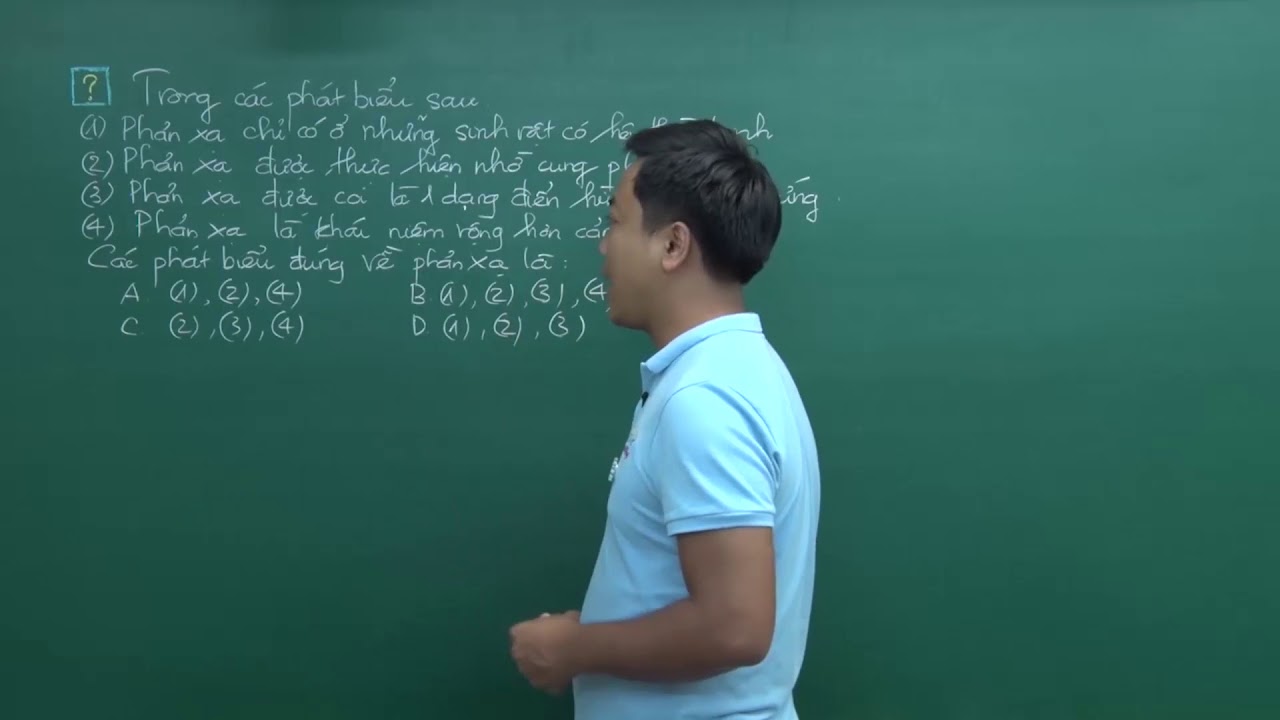 ? Trong các phát biểu sau
(1) Phản xạ chỉ có ở những sinh vật có
(2) Phản xạ được thực hiện nhờ cung
(3) Phản xạ được coi là 1 dạng điển ứng.
(4) Phản xạ là khái niệm rộng hơn
Các phát biểu đúng về phản xạ là:
A. (1), (2), (4) B. (1), (2), (3), (4
C. (2), (3), (4) D. (1), (2), (3)